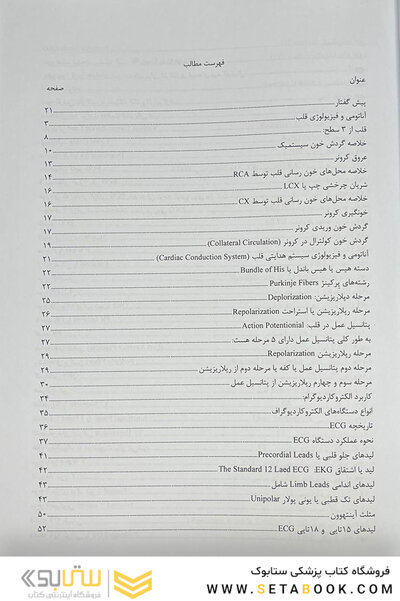 فهرست مطالب
عنوان
صفحه
پیش گفتار ۲۱
آناتومی و فیزیولوژی قلب ۳
قلب از ۳ سطح: ۸
خلاصه گردش خون سیستمیک ۱۰
عروق کرونر ۱۳
خلاصه محل‌های خون رسانی قلب توسط RCA ۱۴
شریان چرخشی چپ یا LCX ۱۶
خلاصه محل‌های خون رسانی قلب توسط CX ۱۶
خونگیری کرونر ۱۷
گردش خون وریدی کرونر ۱۷
گردش خون کولترال در کرونر (Collateral Circulation) ۱۹
آناتومی و فیزیولوژی سیستم هدایتی قلب (Cardiac Conduction System) ۲۱
دسته هیس یا هیس باندل یا Bundle of His ۲۲
رشته‌های پرکینژ Purkinje Fibers ۲۲
مرحله دپلاریزیشن: Deplorization ۲۵
مرحله رپلاریزیشن یا استراحت Repolarization ۲۶
پتانسیل عمل در قلب: Action Potentionial ۲۷
به طور کلی پتانسیل عمل دارای ۵ مرحله هست: ۲۷
مرحله رپلاریزیشن Repolarization ۲۹
مرحله دوم پتانسیل عمل یا کفه یا مرحله دوم از رپلاریزیشن ۲۹
مرحله سوم و چهارم رپلاریزیشن از پتانسیل عمل ۳۰
کاربرد الکتروکاردیوگرام: ۳۴
انواع دستگاه‌های الکتروکاردیوگراف ۳۵
تاریخچه ECG ۳۶
نحوه عملکرد دستگاه ECG ۳۷
لیدهای جلو قلبی یا Precordial Leads ۴۱
لید یا اشتقاق The Standard 12 Laed ECG :EKG ۴۲
لیدهای اندامی Limb Leads شامل ۴۳
لیدهای تک قطبی یا یونی پولار Unipolar ۴۳
مثلث آینتهوون ۵۰
لیدهای ۱۵تایی و ۱۸تایی ECG ۵۲
ستابوک
فروشگاه اینترنتی کتاب
فروشگاه کتاب پزشکی ستابوک
WWW.SETABOOK.COM